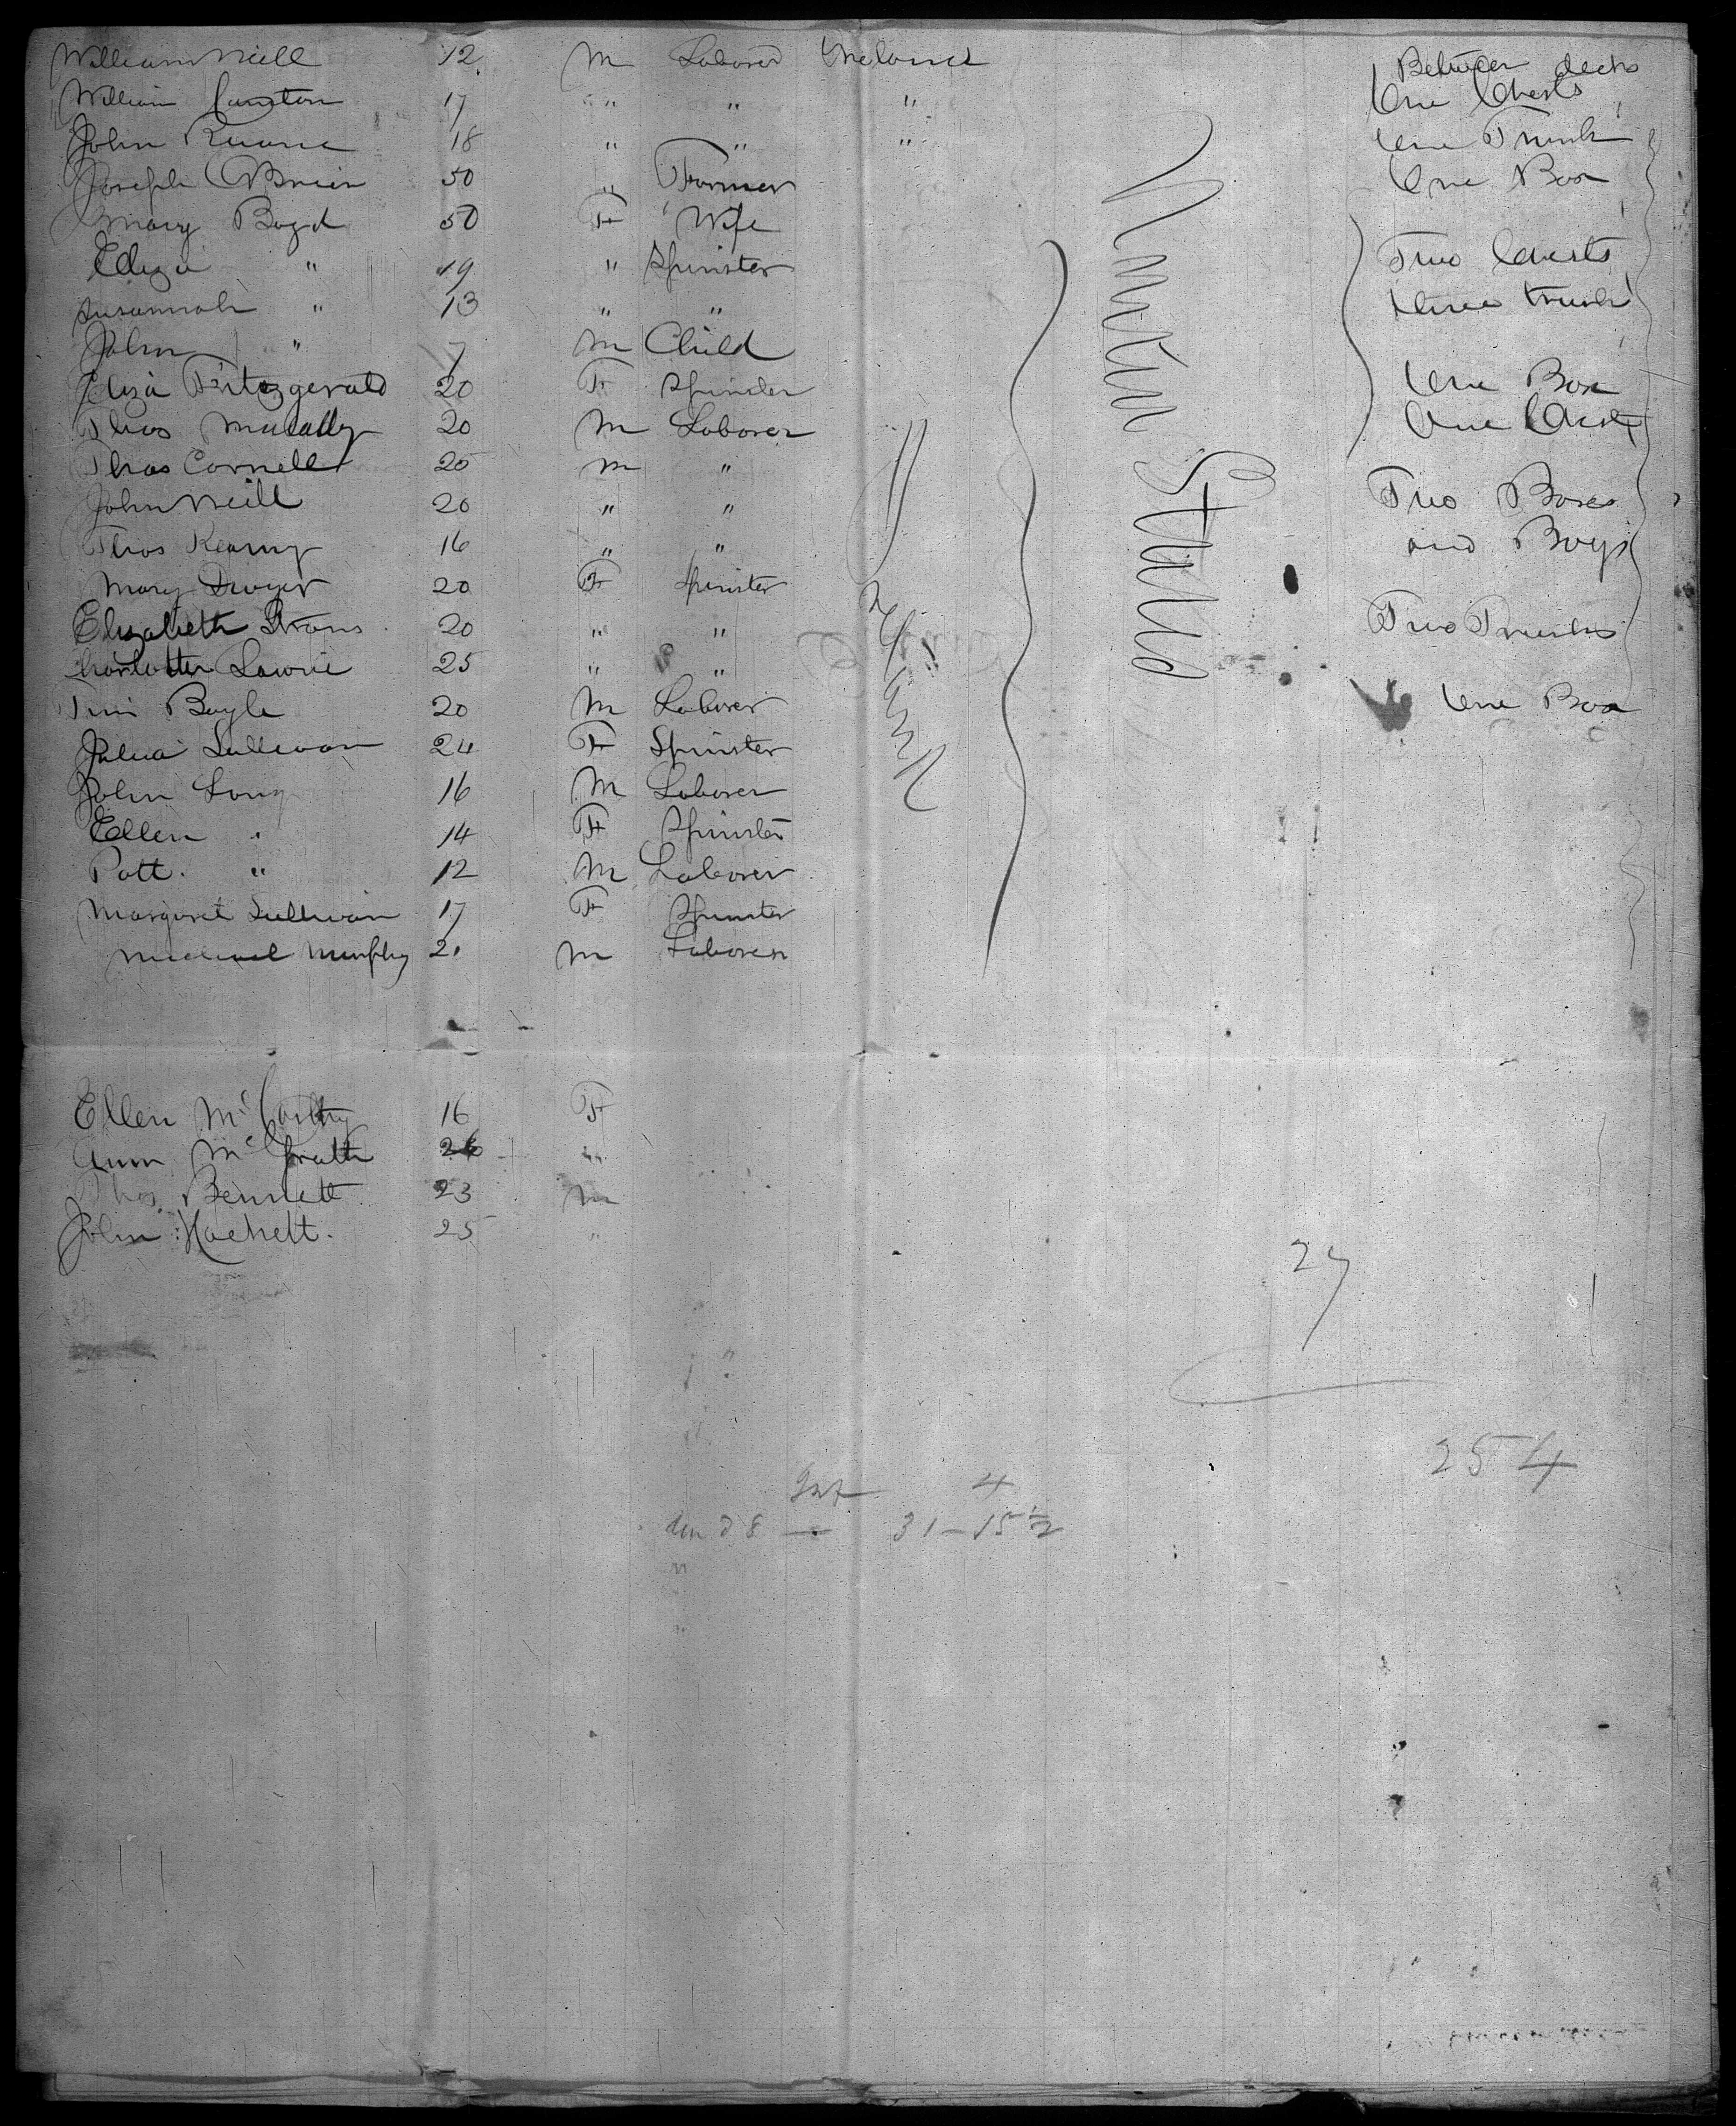 William Neill 12 M Laborer Ireland Between decks
William 17 " " " One Chest
John 18 " " " One Trunk
Joseph OBrien 50 " Farmer One Box
Mary Boyd 50 F Wife
Eliza " 19 " Spinster Two Chests
Susannah " 13 " " three trunks
John " 7 M Child
Eliza Fitzgerald 20 F Spinster One Box
Thos 20 M Laborer One Chest
Thos Connell 25 M "
John Neill 20 " " Two Boxes
Thos Kearny 16 " " and
Mary Dwyer 20 F Spinster
Elizabeth 20 " " Two Trunks
Charlotte Lawrie 25 " "
Tim Boyle 20 M Laborer One Box
Julia Sullivan 24 F Spinster
John Long 16 M Laborer
Ellen " 14 F Spinster
Patt. " 12 M Laborer
Margaret Sullivan 17 F Spinster
Michael Murphy 2. M Laborer
United States
Ellen McCarthy 16 F
Ann McGrath 26 "
Thos Bennett 23 M
John Hackett. 25 "
27
254
4
31-15½